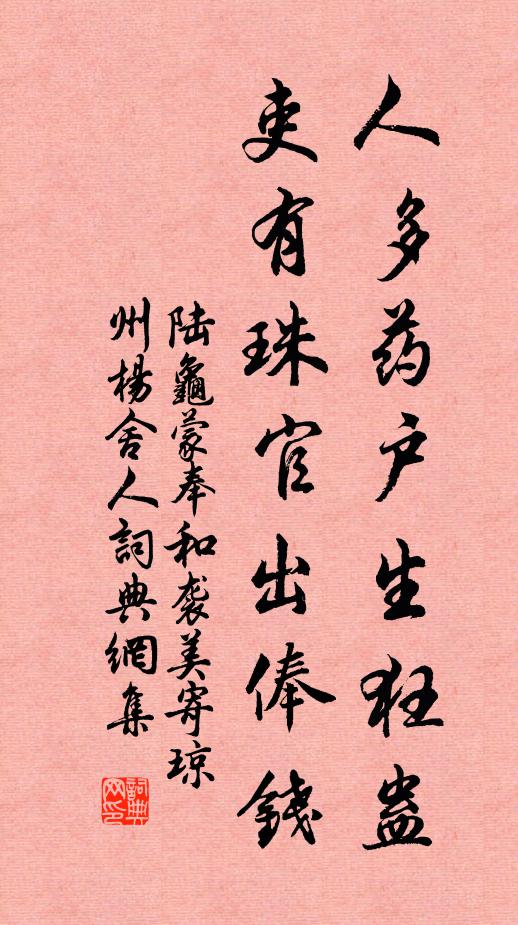 人多药户生狂蛊
吏有珠官出俸錢
陆龜蒙奉和袭美寄琼
州楊舍人詞典網集
詞典网印